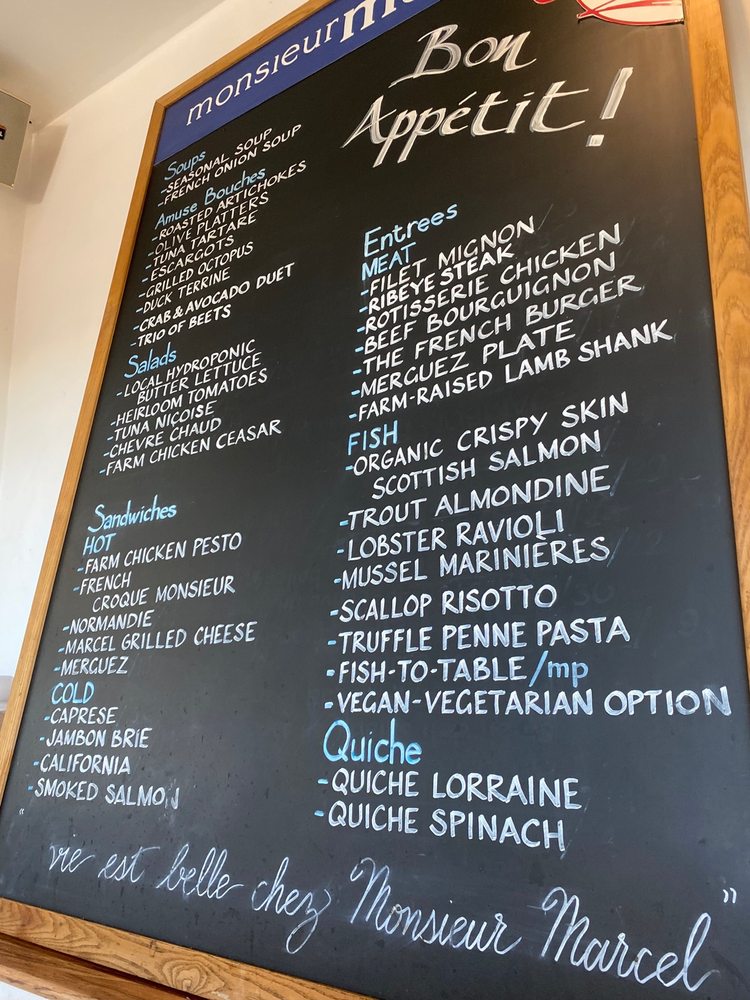 monsieur
Bon
Appétit!
Soups
-SEASONAL SOUP
-FRENCH ONION SOUP
Amuse Bouches
-ROASTED ARTICHOKES
-OLIVE PLATTERS
-TUNA TARTARE
-ESCARGOTS
-GRILLED OCTOPUS
-DUCK TERRINE
-CRAB & AVOCADO DUET
-TRIO OF BEETS
Salads
-LOCAL HYDROPONIC
BUTTER LETTUCE
-HEIRLOOM TOMATOES
-TUNA NIÇOISE
-CHEVRE CHAUD
-FARM CHICKEN CEASAR
Sandwiches
HOT
-FARM CHICKEN PESTO
-FRENCH
CROQUE MONSIEUR
-NORMANDIE
-MARCEL GRILLED CHEESE
-MERGUEZ
COLD
-CAPRESE
-JAMBON BRIE
-CALIFORNIA
-SMOKED SALMON
Entrees
MEAT
-FILET MIGNON
-RIBEYE STEAK
-ROTISSERIE CHICKEN
-BEEF BOURGUIGNON
-THE FRENCH BURGER
-MERGUEZ PLATE
-FARM-RAISED LAMB SHANK
FISH
-ORGANIC CRISPY SKIN
SCOTTISH SALMON
-TROUT ALMONDINE
-LOBSTER RAVIOLI
-MUSSEL MARINIÈRES
-SCALLOP RISOTTO
-TRUFFLE PENNE PASTA
-FISH-TO-TABLE/mp
-VEGAN-VEGETARIAN OPTION
Quiche
-QUICHE LORRAINE
-QUICHE SPINACH
"vie est belle chez Monsieur Marcel"